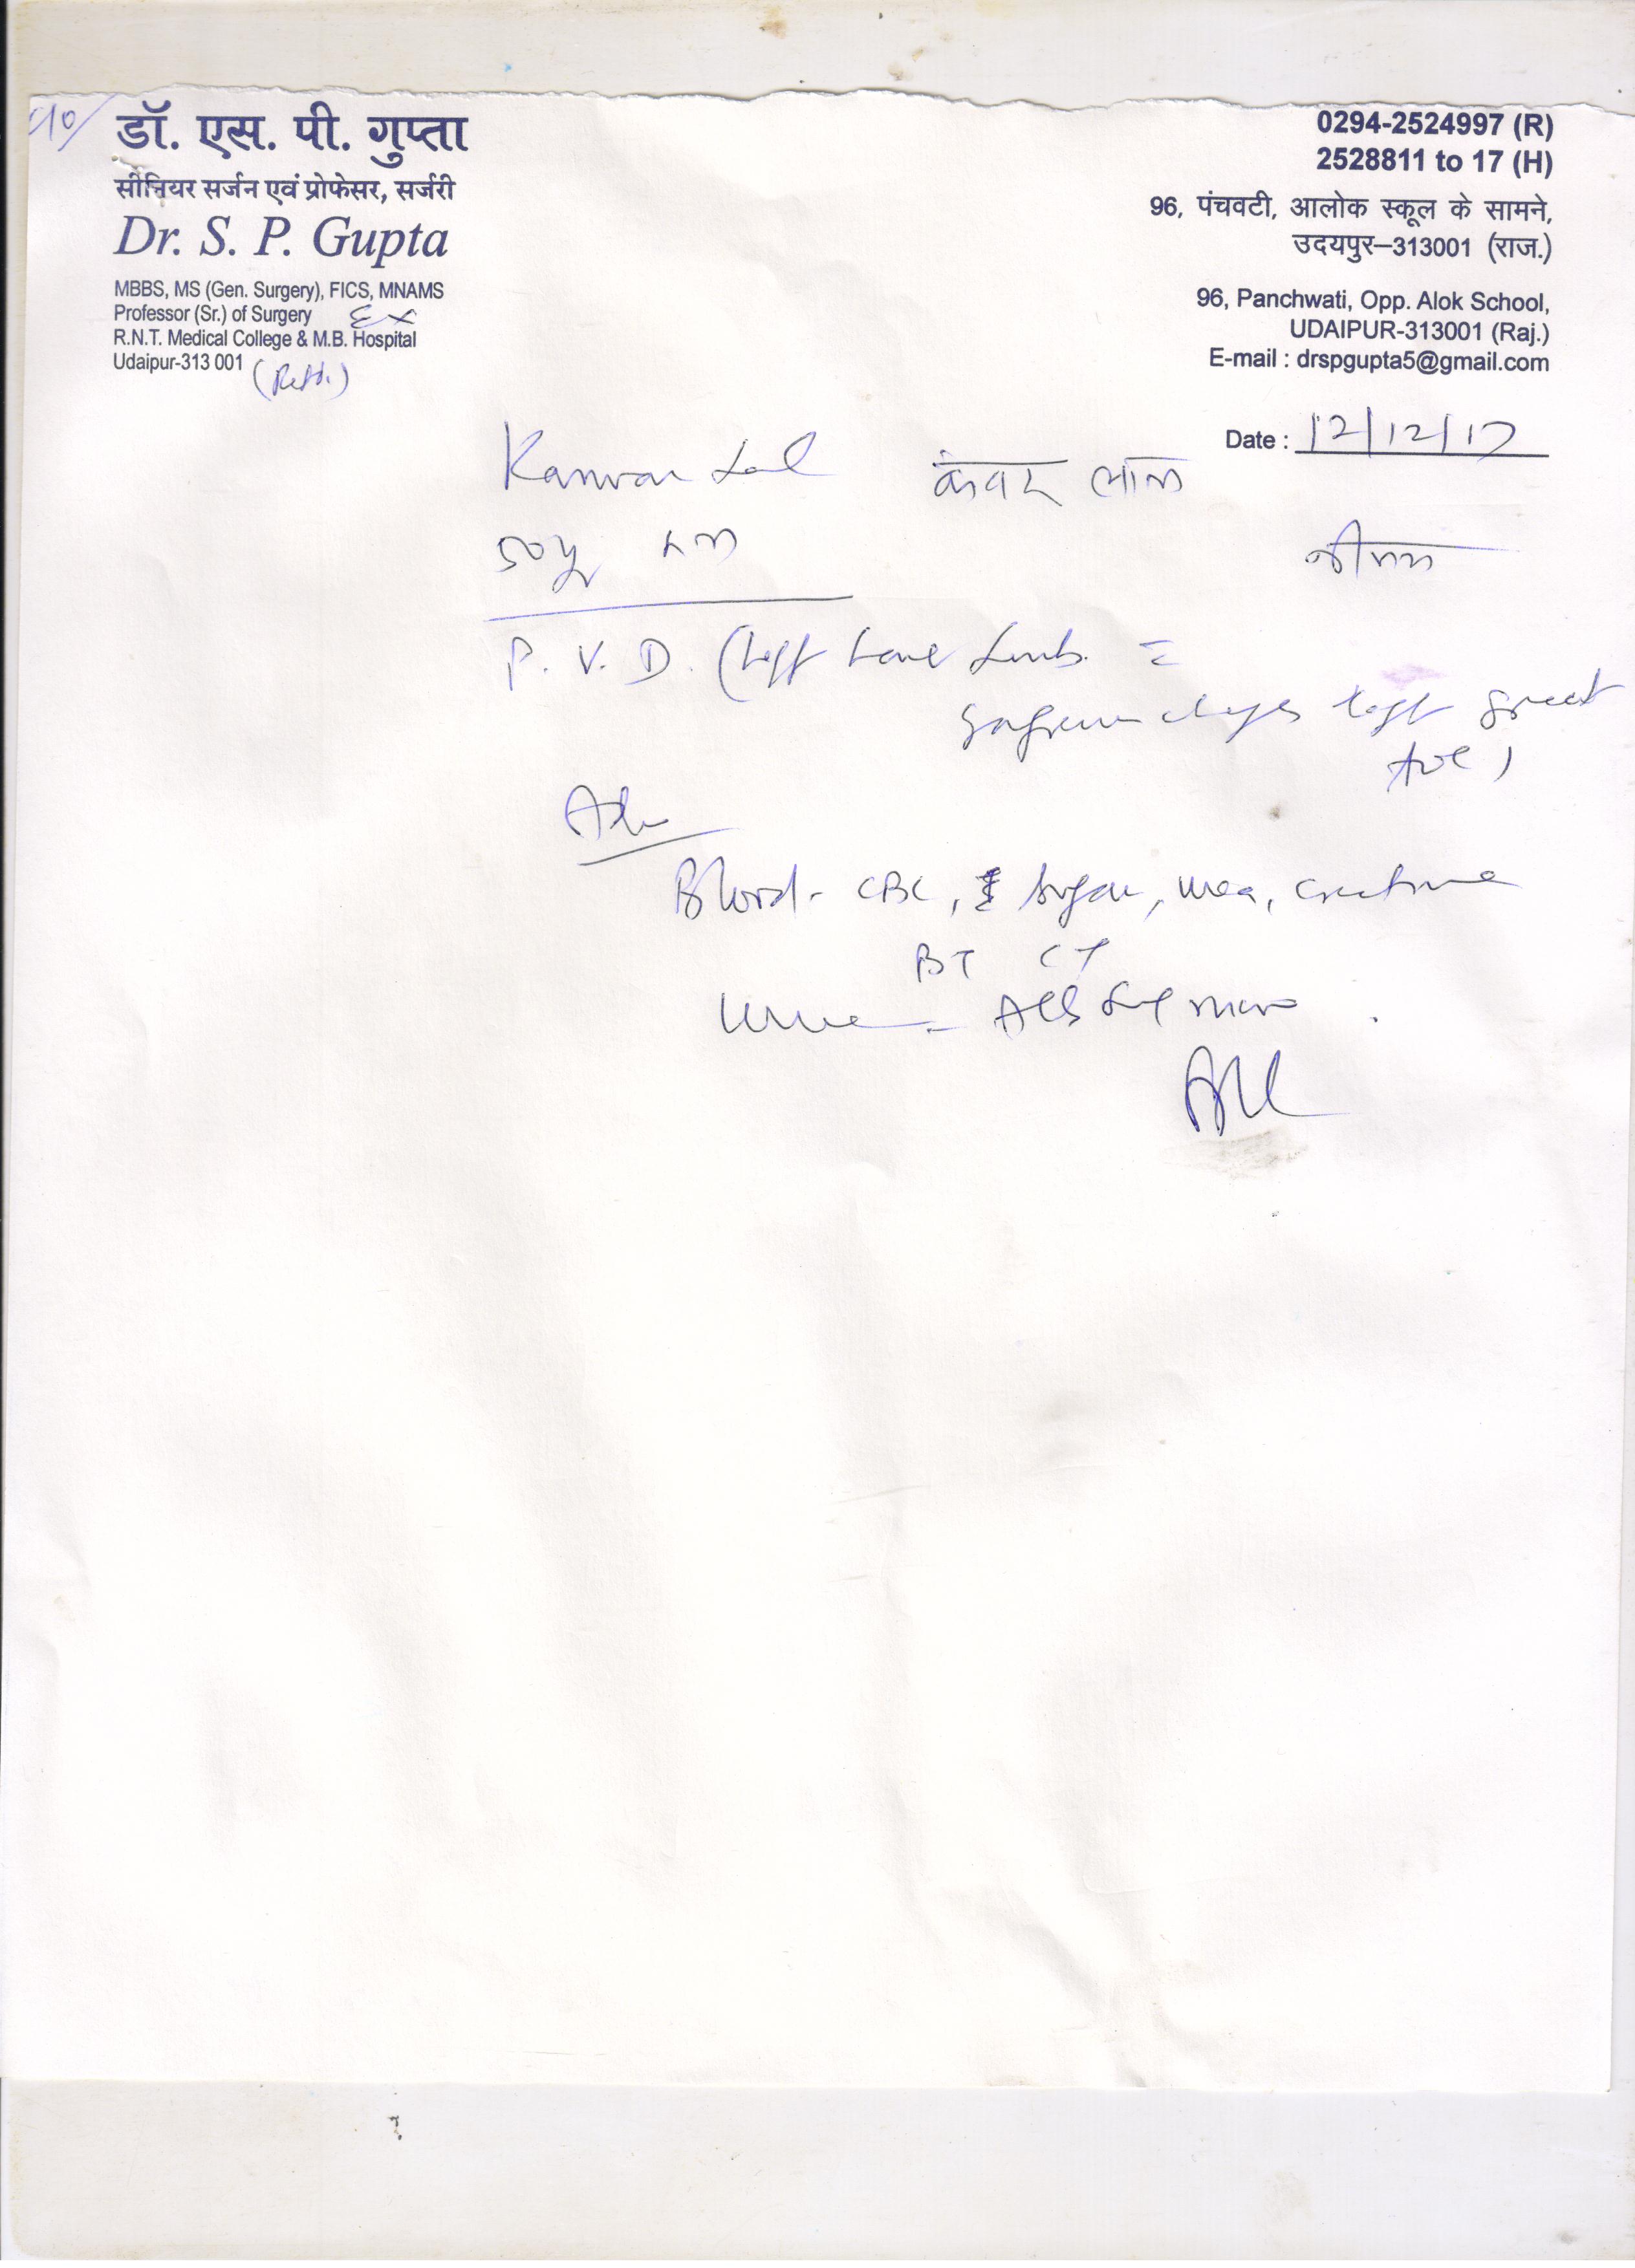 90/
डॉ. एस. पी. गुप्ता
सीनियर सर्जन एवं प्रोफेसर, सर्जरी
Dr. S. P. Gupta
MBBS, MS (Gen. Surgery), FICS, MNAMS
Professor (Sr.) of Surgery Ex
R.N.T. Medical College & M.B. Hospital
Udaipur-313 001 (Retd.)
0294-2524997 (R)
2528811 to 17 (H)
96, पंचवटी, आलोक स्कूल के सामने,
उदयपुर–313001 (राज.)
96, Panchwati, Opp. Alok School,
UDAIPUR-313001 (Raj.)
E-mail : drspgupta5@gmail.com
Date : 12/12/17
Kanwar Lal कंवर लाल
50y
P. V. D. (Left Lower Limb
left great
toe)
Adv
Blood - CBC, Sugar, Urea, Creatinine
BT CT
Urine - Alb Sug micro